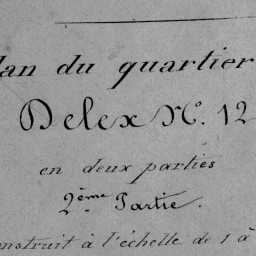 lan du quartier
Delex N.º 12
en deux parties
2.ème Partie.
onstruit à l'échelle de 1 à